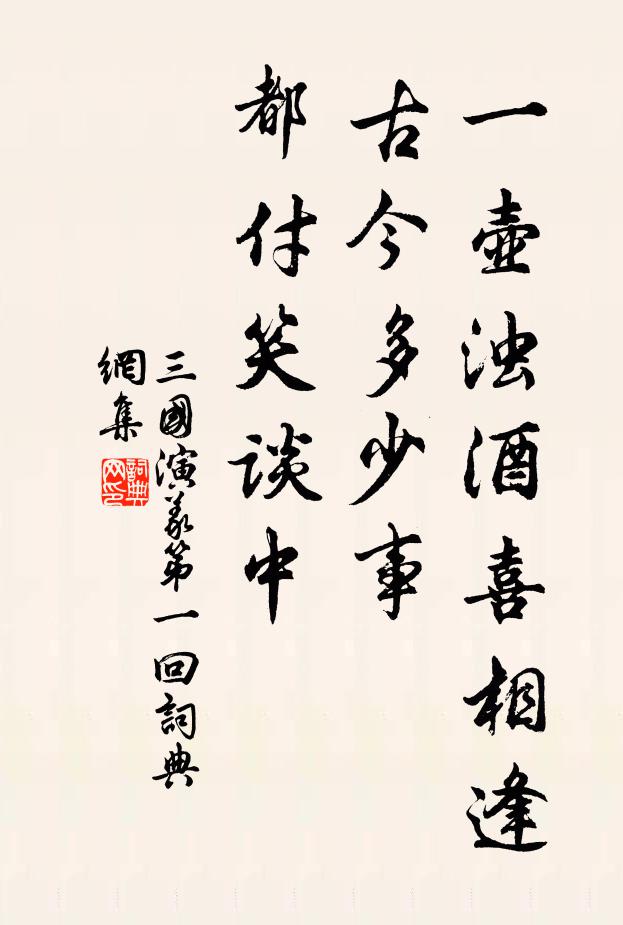 一壺浊酒喜相逢
古今多少事
都付笑谈中
三國演義第一回詞典
網集
詞典網印